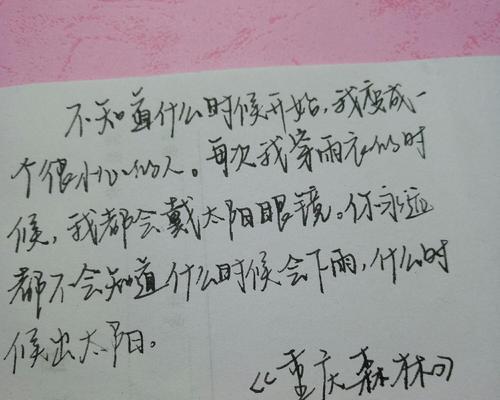 不知道什么时候开始，我变成一
个很小心的人。每次我穿雨衣的时
候，我都会戴太阳眼镜。你永远
都不会知道什么时候会下雨，什么时
候出太阳。
《重庆森林》